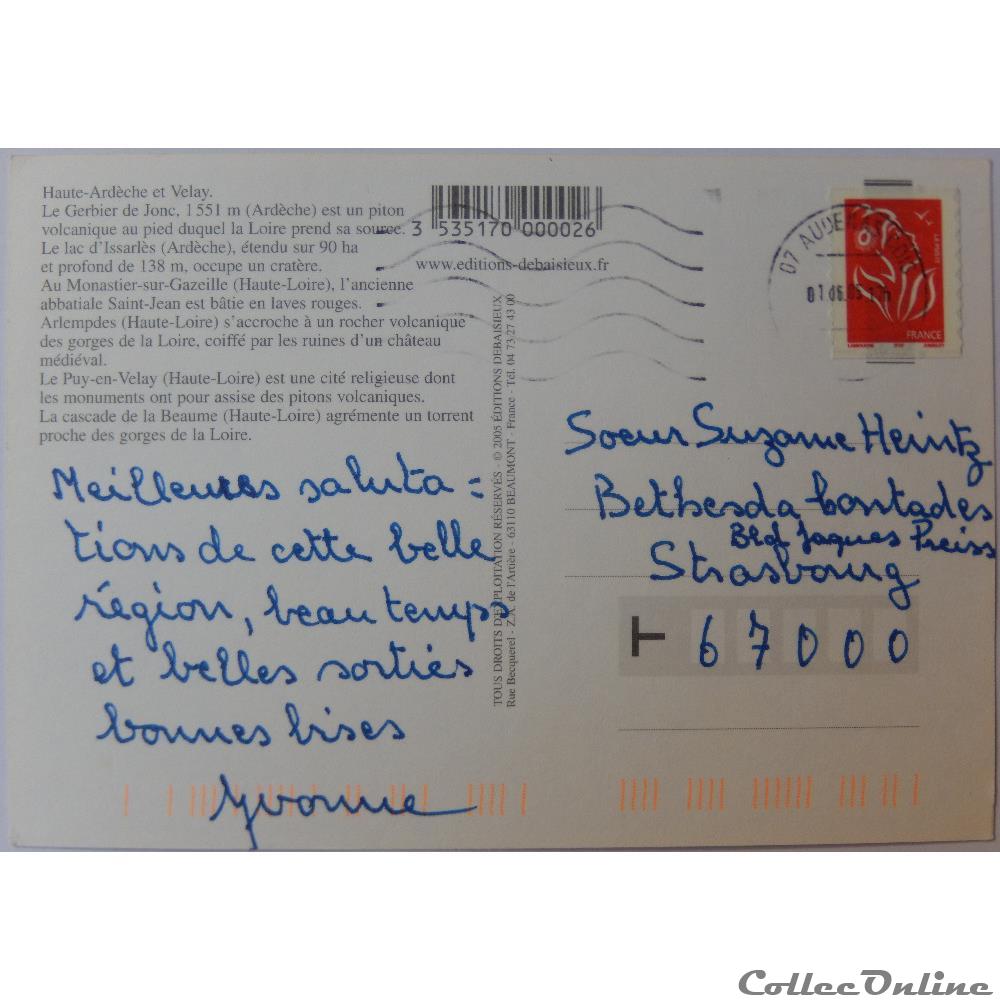 Haute-Ardèche et Velay.
Le Gerbier de Jonc, 1 551 m (Ardèche) est un piton
volcanique au pied duquel la Loire prend sa source.
Le lac d'Issarlès (Ardèche), étendu sur 90 ha
et profond de 138 m, occupe un cratère.
Au Monastier-sur-Gazeille (Haute-Loire), l'ancienne
abbatiale Saint-Jean est bâtie en laves rouges.
Arlempdes (Haute-Loire) s'accroche à un rocher volcanique
des gorges de la Loire, coiffé par les ruines d'un château
médiéval.
Le Puy-en-Velay (Haute-Loire) est une cité religieuse dont
les monuments ont pour assise des pitons volcaniques.
La cascade de la Beaume (Haute-Loire) agrémente un torrent
proche des gorges de la Loire.
3 535170 000026
www.editions-debaisieux.fr
TOUS DROITS D'EXPLOITATION RÉSERVÉS - © 2005 ÉDITIONS DEBAISIEUX
Rue Becquerel - Z.A. de l'Artière - 63110 BEAUMONT - France - Tél. 04 73 27 43 00
07 AUBENAS
LA POSTE
FRANCE
Meilleures saluta=
tions de cette belle
région, beau temps
et belles sorties
bonnes bises
Yvonne
Soeur Suzanne Heintz
Bethesda Contades
Bld Jaques Preiss
Strasbourg
T 67000
CollecOnline